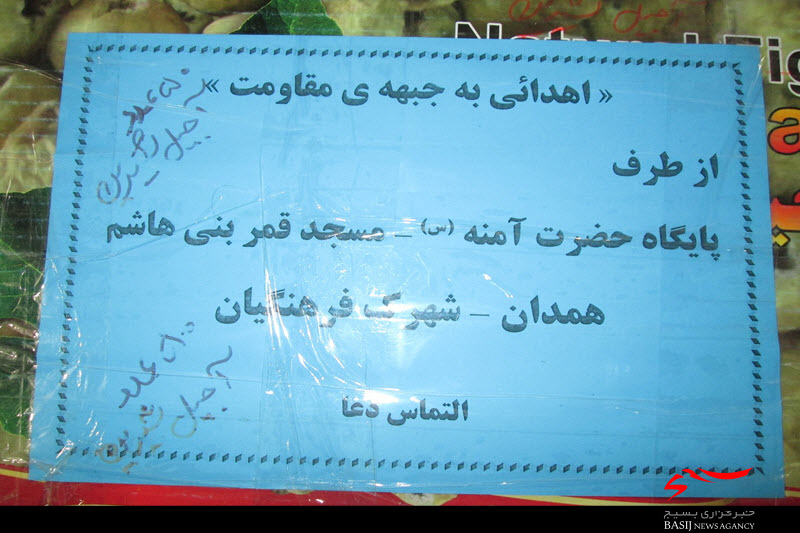 « اهدائی به جبهه ی مقاومت »
از طرف
پایگاه حضرت آمنه (س) – مسجد قمر بنی هاشم
همدان – شهرک فرهنگیان
التماس دعا
۵۰ عدد
آجیل
عدد
آجیل شیرین
Natural Fig
خبرگزاری بسیج
BASIJ NEWS AGANCY